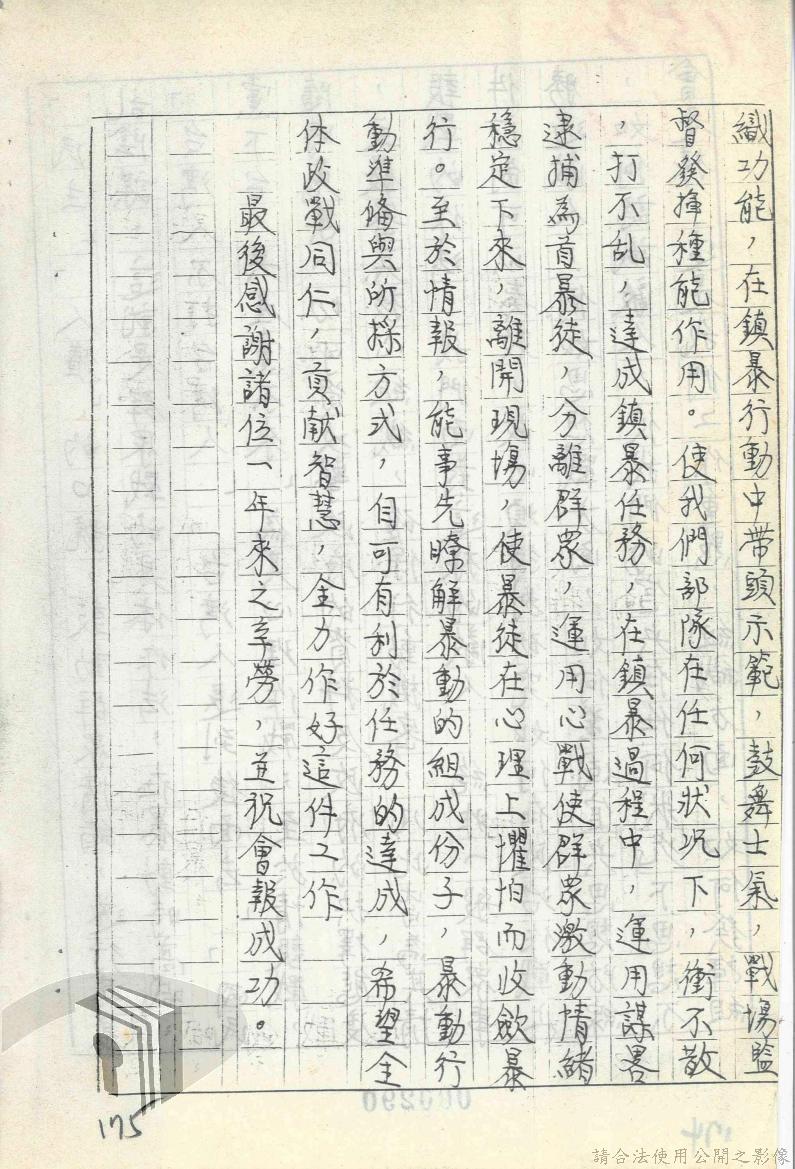 織功能，在鎮暴行動中带頭示範，鼓舞士氣，戰場監
督發揮種能作用。使我們部隊在任何狀況下，衝不散
，打不乱，達成鎮暴任務，在鎮暴過程中，運用謀畧
逮捕為首暴徒，分離群眾，運用心戰使群眾激動情緒
穩定下來，離開現場，使暴徒在心理上懼怕而收歛暴
行。至於情報，能事先瞭解暴動的組成份子，暴動行
動準備與所採方式，自可有利於任務的達成，希望全
体政戰同仁，貢献智慧，全力作好這件工作
最後感謝諸位一年來之辛勞，並祝會報成功。
175
000290
174
請合法使用公開之影像